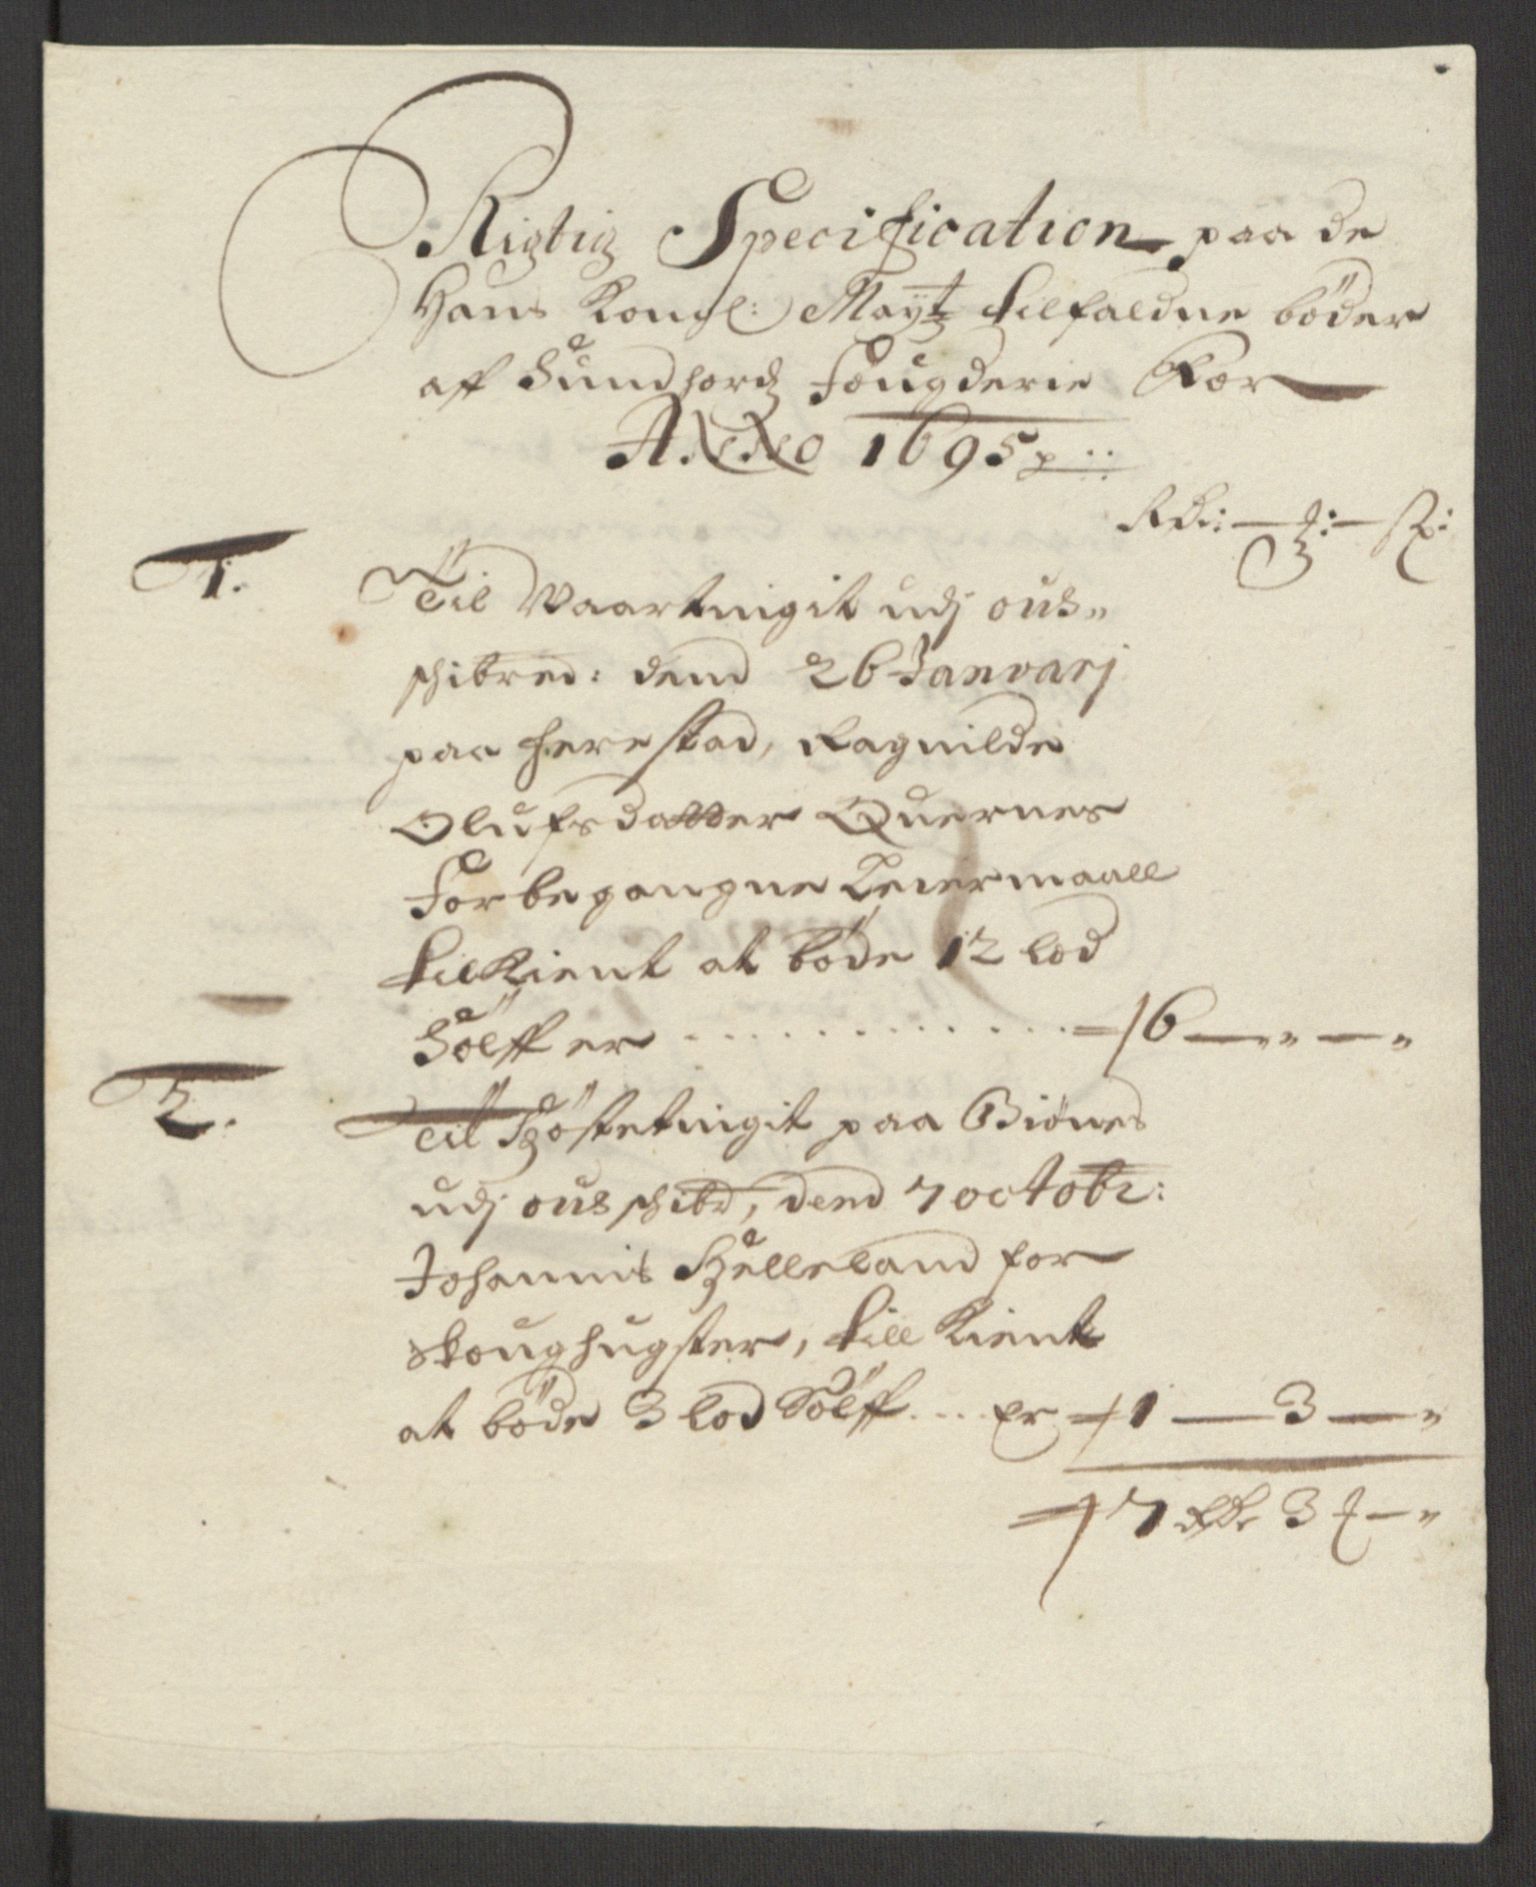 Rigtig Specification paa de
Hans Kongl: Mayt tilfaldne böder
aff Sundhordz Fougderie For
Anno 1695
Rdr:— —
1. Til Vaartingit udj ous„
schibred: dend 26 Januarj
paa Herestad, Ragnilde
Olufsdatter Quernes
For begangne Leiermaall
tilkient at böde 12 lod
Sölff er . . . . . . . . . . . 6 — „ — „
2. Til Höstetingit paa Biönes
udj ous schibr, dend 7 octobr:
Johannis Helleland for
Skoughugster, till Kient
at böde 3 lod Sölff .... er 1 — 3 — „
7 Rdr 3 — „